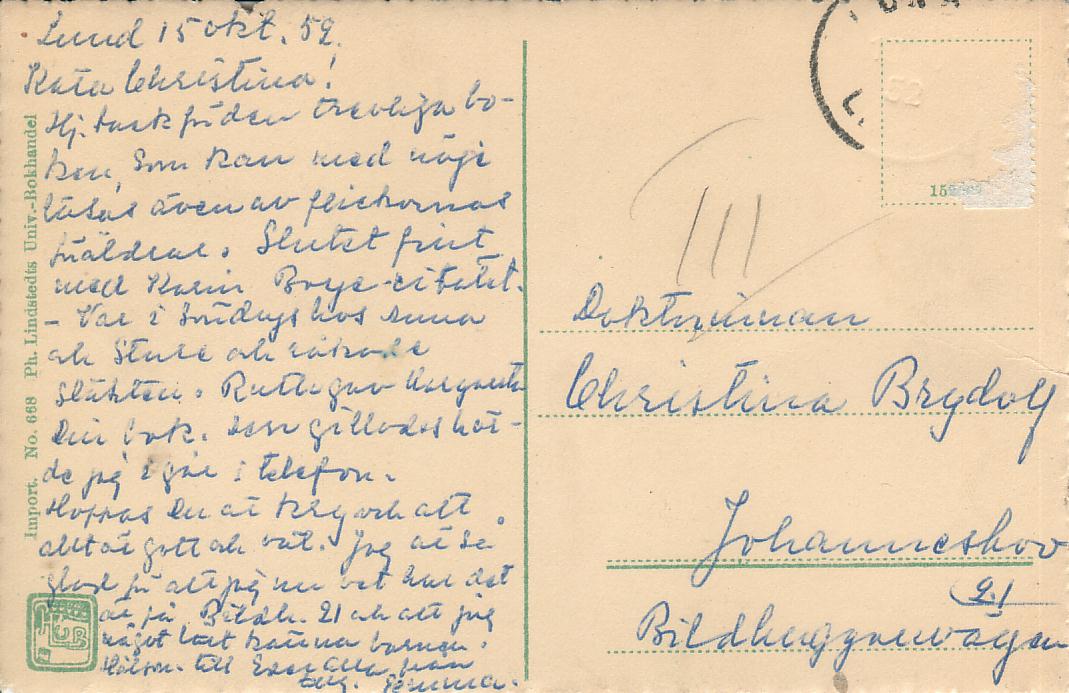 Lund 15 okt. 52.
Kära Christina!
Hj. tack för den trevliga bo-
ken, som kan med nöje
läsas även av flickornas
föräldrar. Slutet fint
med Karin Boye-citatet.
– Var i Söndags hos
och Sture och råkade
släkten. Ruth gav Margareta
Din bok. Den gillades hör-
de jag i går i telefon.
Hoppas Du är kry och att
allt är gott och väl. Jag är så
glad för att jag nu vet hur det
är på Bildh. 21 och att jag
något lärt känna barnen.
Hälsn. till Eder alla från
Emma.
Import. No. 668 Ph. Lindstedts Univ.-Bokhandel
III
Doktorinnan
Christina Brydolf
Johanneshov
Bildhuggarvägen
21